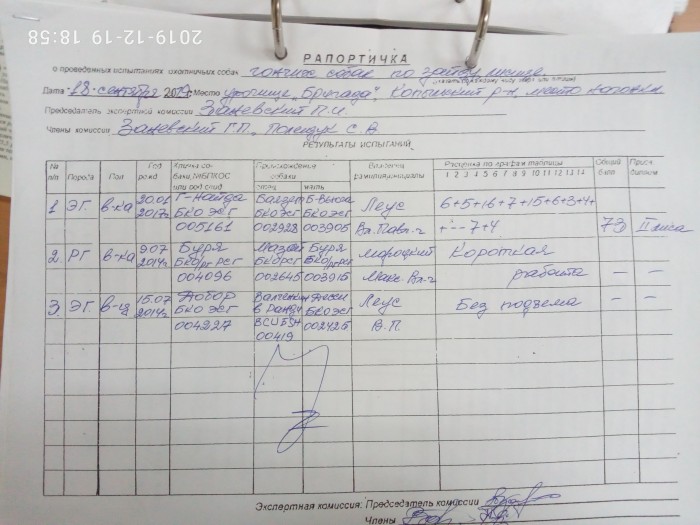 2019-12-19 18:58
РАПОРТИЧКА
о проведенных испытаниях охотничьих собак гончие собак по зайцу лисице.
Дата 28 сентября 2019 Место урочище "Бригада", Копыльский р-н, место наловки
Председатель экспертной комиссии Заневский П.И.
Члены комиссии Заневский Г.П., Полещук С.В.
РЕЗУЛЬТАТЫ ИСПЫТАНИЙ
№ п/п Порода Пол Год рожд Кличка собаки, №ВПКОС или род свид Происхождение собаки отец мать Владелец фамилия, инициалы Расценка по графам таблицы 1 2 3 4 5 6 7 8 9 10 11 12 13 14 Общий балл Прис. диплом
1 ЭГ в-ка 20.01 2017г Г-Найда БКО ЭСГ 005161 БКОЭСГ 002928 Б-Вьюга БКОЭСГ 003905 Леус Вл.Павл-ч 6+5+16+7+15+6+3+4+ +--7+4 73 II лиса
2. РГ в-ка 9.07 2014г Буря РСГ 004096 002645 Буря 003915 Мороцкий Макс. Вл-ч Короткая работа — —
3. ЭГ в-ц 15.07 2014г БКО ЭСГ 004227 00419 БКОЭСГ 002425 Леус В.П. Без подъема — —
Экспертная комиссия: Председатель комиссии
Члены